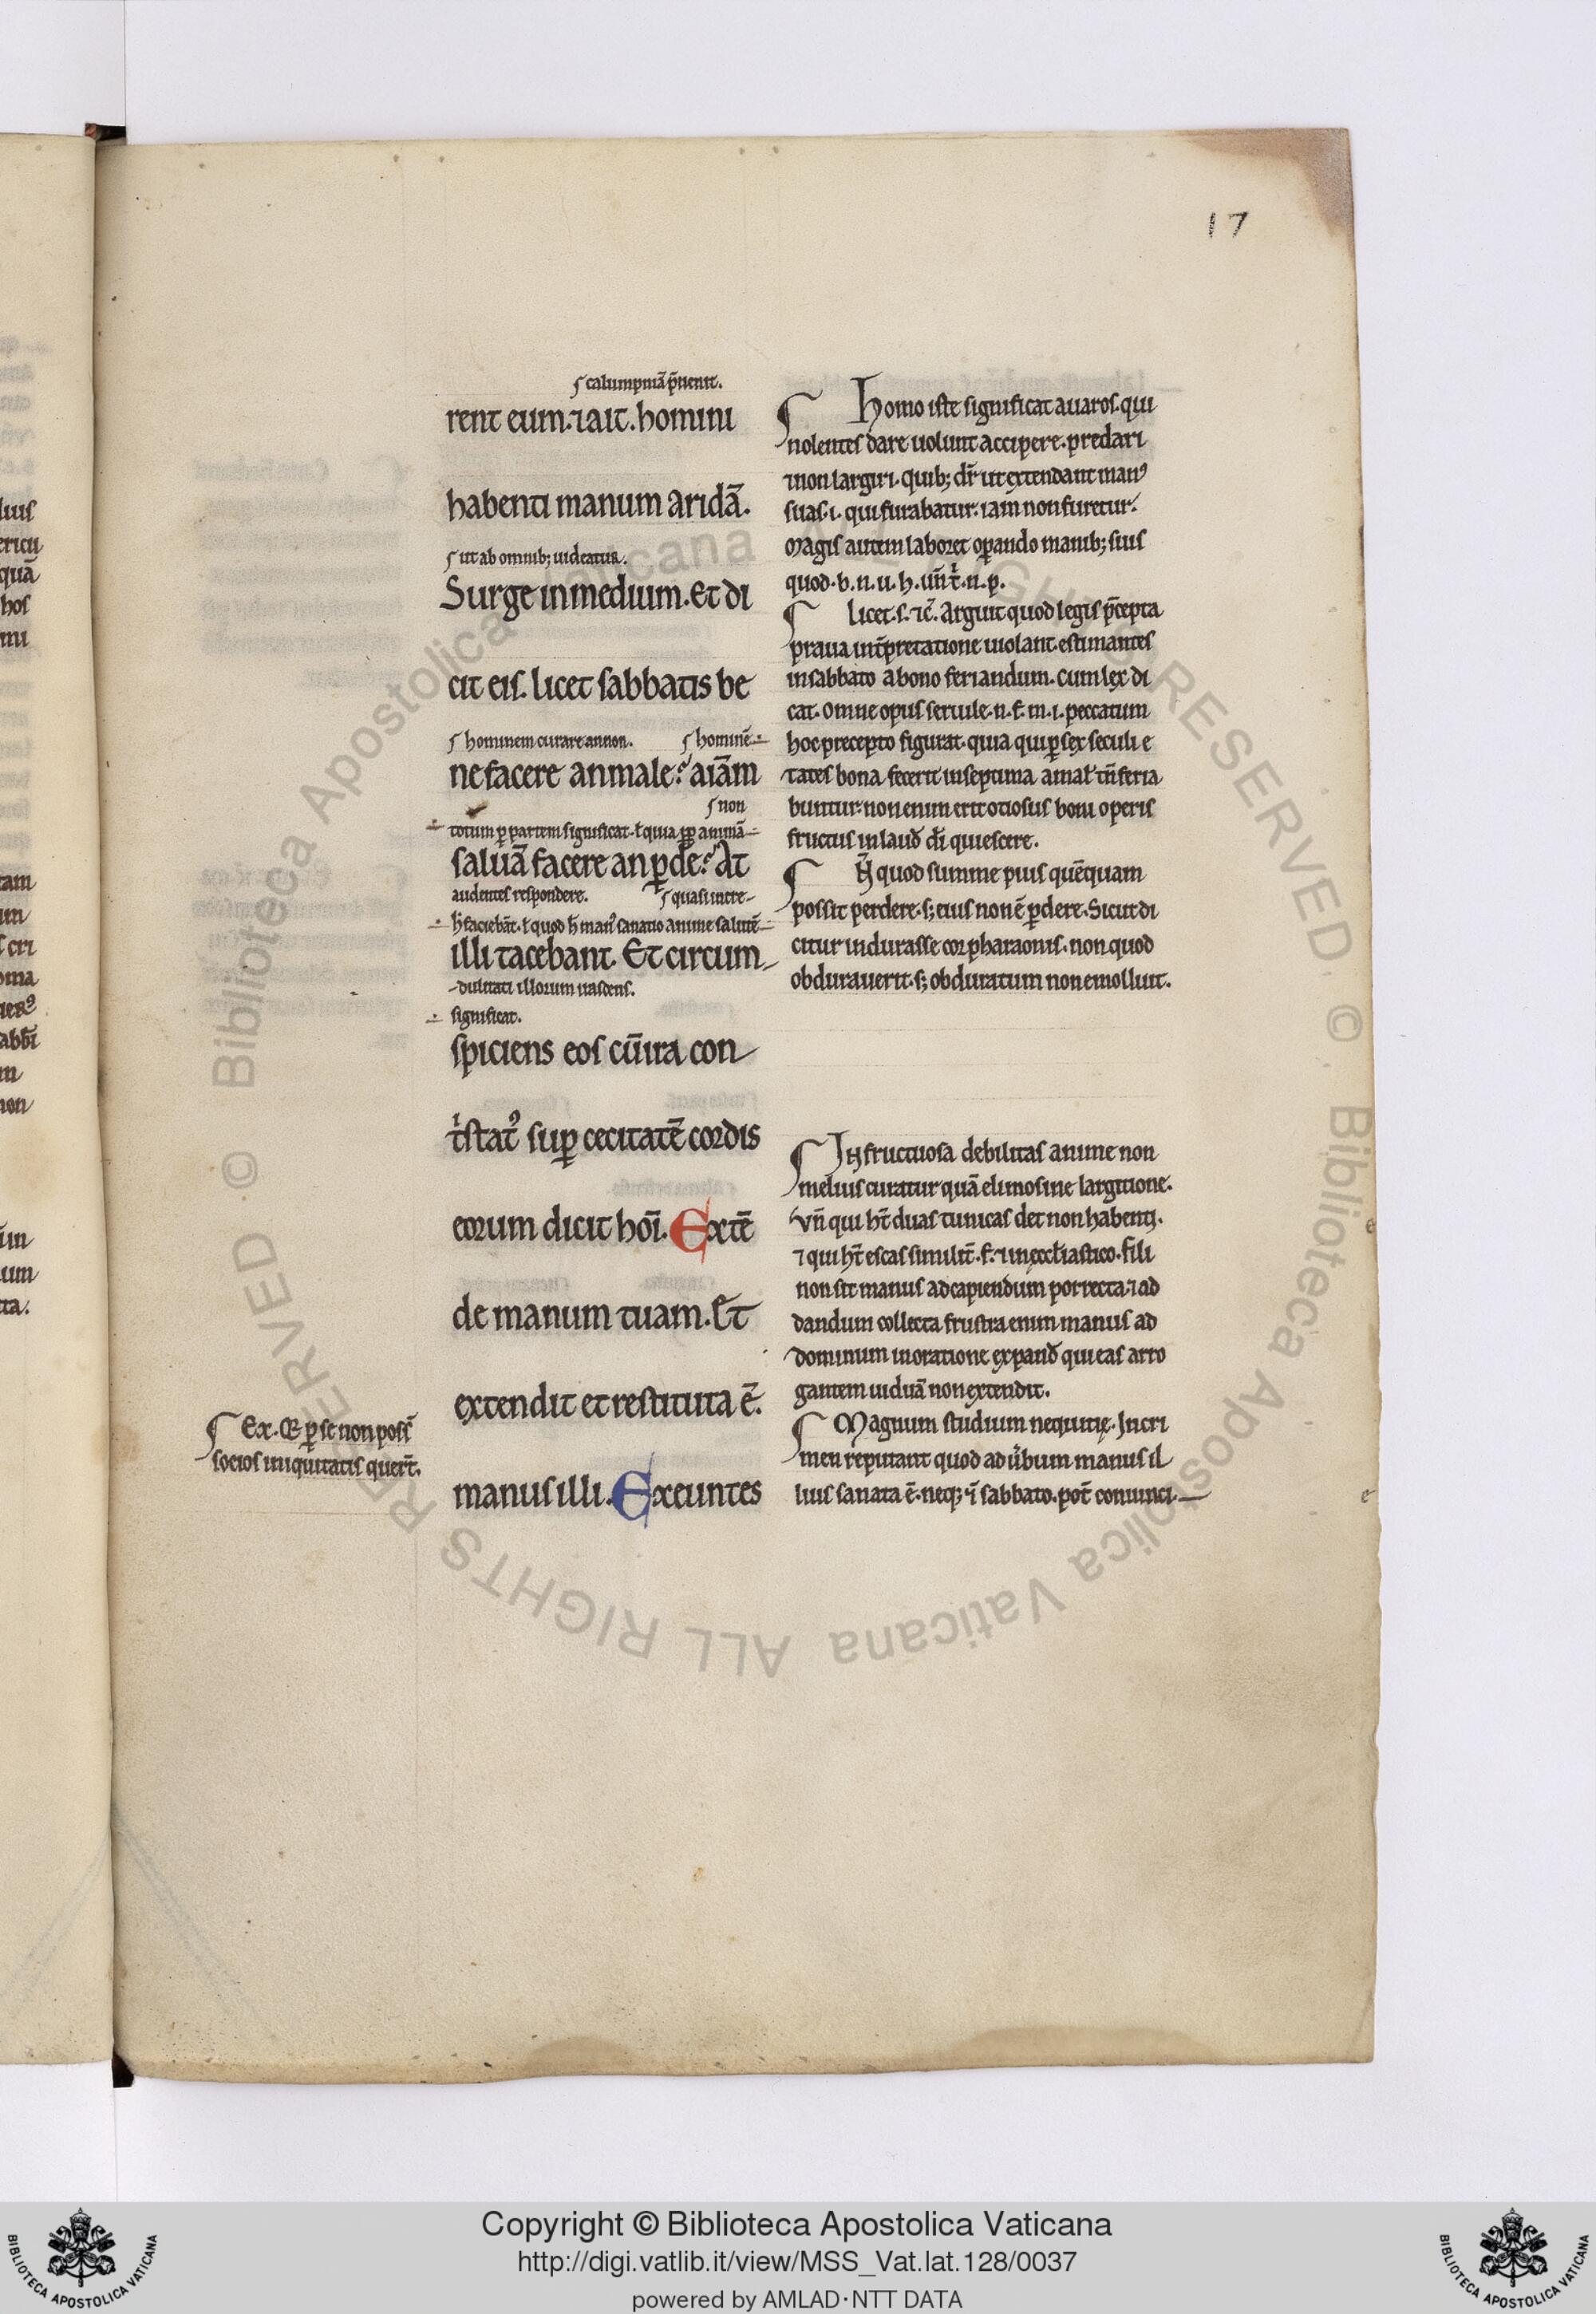 17
calumpniā p̄uenit.
rent eum. ⁊ ait. homini
habenti manum aridā.
ut ab omnib; uideatur.
Surge in medium. Et di
cit eis. licet sabbatis be
hominem curare annon. hominē
ne facere an male? aīam
non
totum ꝑ partem significat. ł quia ꝓꝑ animā
saluā facere an ꝑde? At
audentes respondere. quasi incre-
h̄ faciebāt. ł quod h̄ manꝰ sanatio anime salutē
illi tacebant. Et circum-
-dulitati illorum irascens.
significat.
spiciens eos cū ira con-
t͛istatꝰ suꝑ cecitatē cordis
eorum dicit hoī. Extē
de manum tuam. Et
extendit et restituta ē.
manus illi. Exeuntes
Ex. Q ꝑ se non poss̄
socios iniquitatis quer̄t.
Homo iste significat auaros. qui
nolentes dare uolunt accipere. predari
⁊ non largiri. quib; dr̄ ut extendant manꝰ
suas. i. qui furabatur. iam non furetur.
Magis autem laboret oꝑando manib; suis
quod. b. n. u. h. un̄ t̄. n. p.
licet. s. ⁊c̄. Arguit quod legis p̄cepta
praua int̄pretatione uiolant. estimantes
in sabbato a bono feriandum. cum lex di
cat. omne opus seruile. n. f. m. i. peccatum
hoc precepto figurat. quia qui ꝑ sex seculi e
tates bona fecerit in septima a mal' tn̄ feria
buntur. non enim erit otiosus boni operis
fructus in laud̄ dī quiescere.
N̄ quod summe pius quēquam
possit perdere. s; eius non ē ꝑdere. Sicut di
citur indurasse cor pharaonis. non quod
obdurauerit. s; obduratum non emolluit.
Infructuosa debilitas anime non
melius curatur quā elimosine largitione.
Vn̄ qui hт̄ duas tunicas det non habenti.
⁊ qui ht̄ escas similit̄. f. ⁊ in ęccl'iastico. fili
non sit manus ad capiendum porrecta. ⁊ ad
dandum collecta frustra enim manus ad
dominum in oratione expand̄ qui eas a rro
gantem uiduā non extendit.
Magnum studium nequitię. In cri
men reputant quod ad u̇bum manus il
lius sanata ē. neq; ī sabbato. pot̄ conuinci.
Copyright © Biblioteca Apostolica Vaticana
http://digi.vatlib.it/view/MSS_Vat.lat.128/0037
powered by AMLAD·NTT DATA